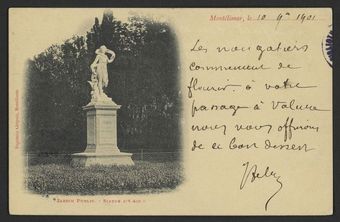 Montélimar, le 10 9re 1901
Les nougatiers
commencent de
fleurir. à votre
passage à Valence
nous vous offrirons
de ce bon dessert
JARDIN PUBLIC. - STATUE